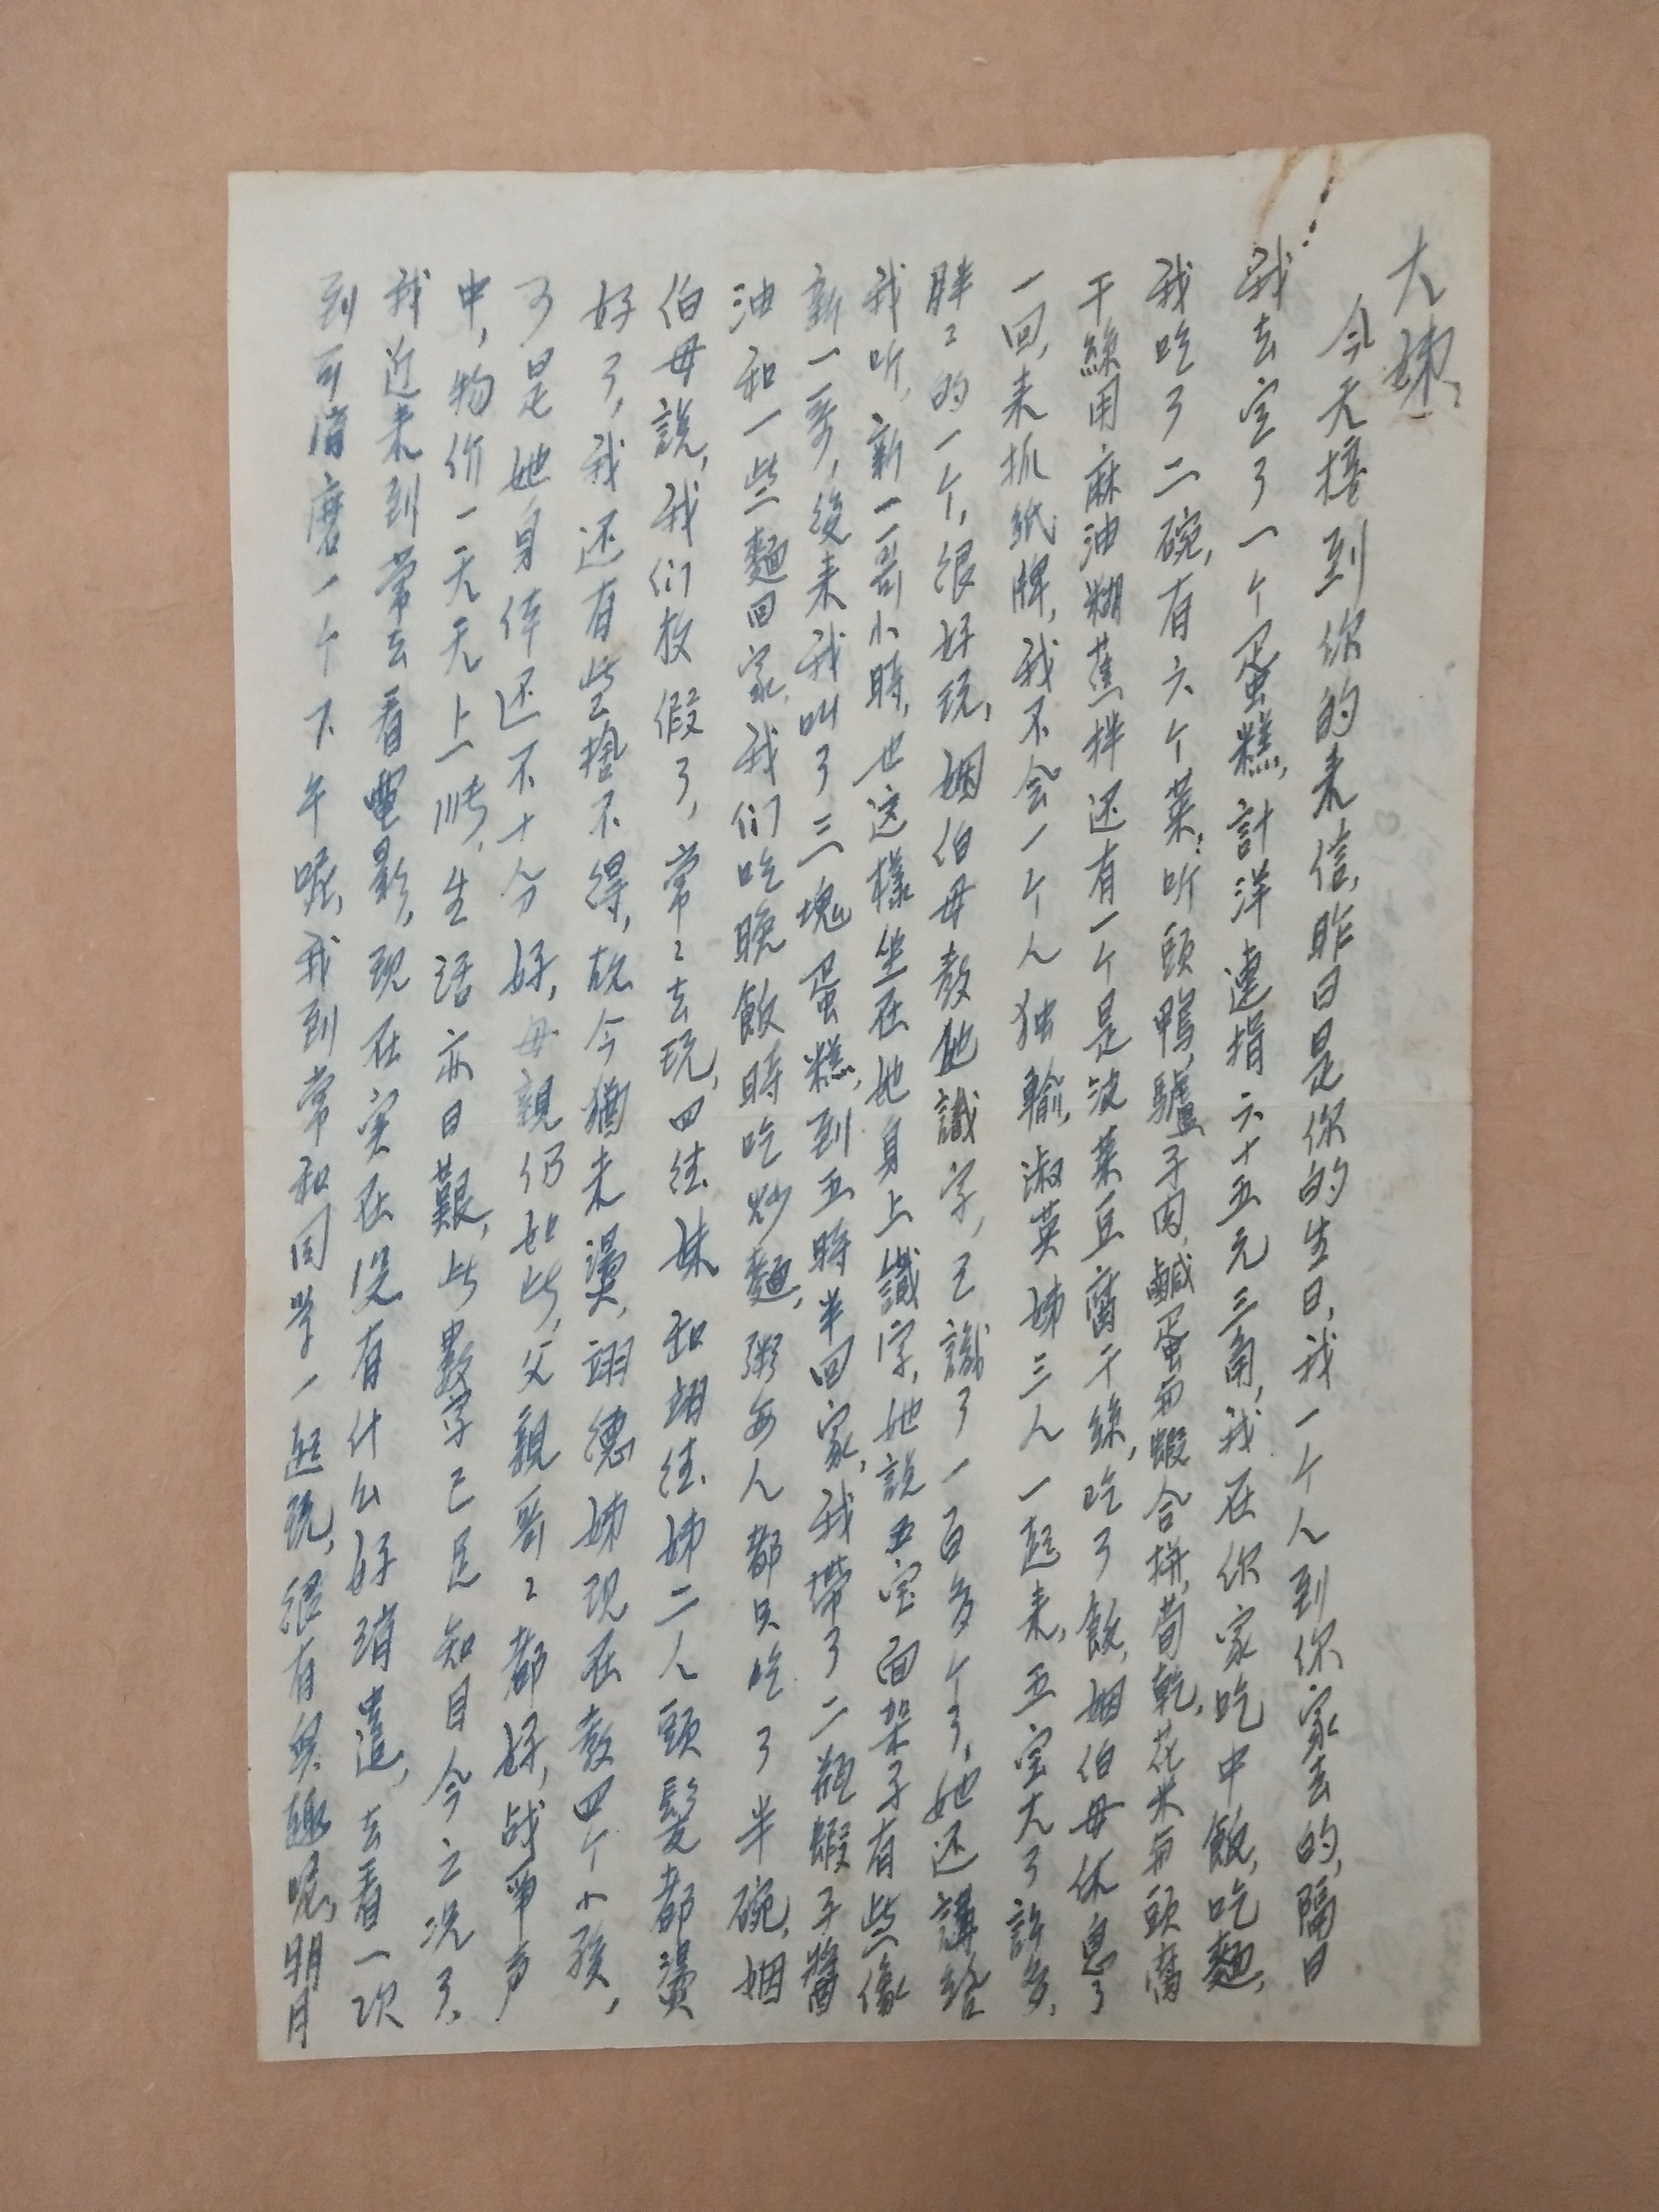 大妹,
今天接到你的来信,昨日是你的生日,我一个人到你家去的,隔日
我去定了一个蛋糕,計洋連捐六十五元三角,我在你家吃中飯,吃麵,
我吃了二碗,有六个菜:听頭鴨,驢子肉,鹹蛋与蝦合拼,筍乾,花米与頭腐
干絲用麻油糊蕉拌还有一个是波菜豆腐干絲,吃了飯,姻伯母休息了
一回,来抓紙牌,我不会一个人独輸,淑英姊三人一起来,五宝大了許多,
胖〻的一个,很好玩,姻伯母教他識字,已識了一百多个了,她还講給
我听,新一哥小時,也这樣坐在她身上識字,她説五宝面架子有些像
新一哥,後来我叫了三塊蛋糕,到五時半回家,我帶了二瓶蝦子醬
油和一些麵回家,我们吃晚飯時吃炒麵,粥每人都只吃了半碗,姻
伯母説,我们放假了,常〻去玩,四佳妹和翊佳姊二人頭髮都燙
好了,我还有些捨不得,故今猶未燙,翊德姊現在教四个小孩,
可是她身体还不十分好,母親仍如此,父親哥〻都好,战爭声
中,物价一天天上順,生活亦日艱,此數字已足知目今之况了,
我近来到常去看電影,現在实在没有什么好消遣,去看一次
到可消磨一个下午呢,我到常和同学一起玩,很有興趣呢,明月